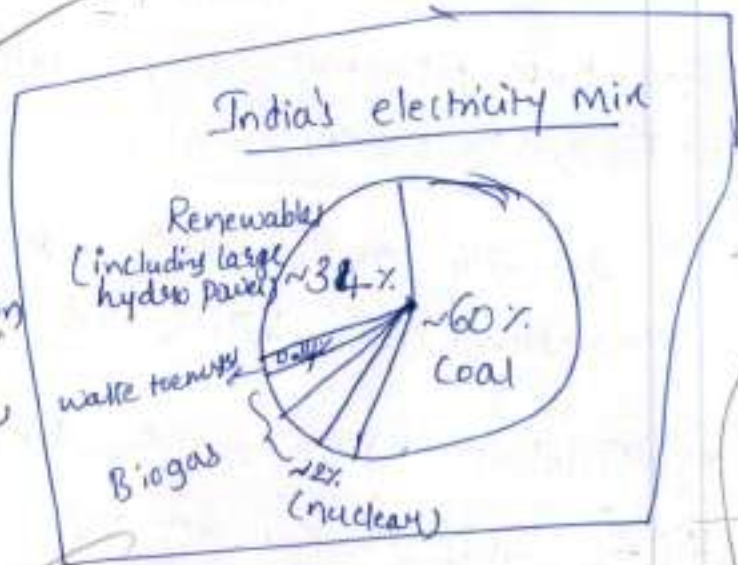 India's electricity Mix
Renewables
(including large
hydro power)
~34%
~60%
Coal
waste to energy
Biogas
~2%
(nuclear)